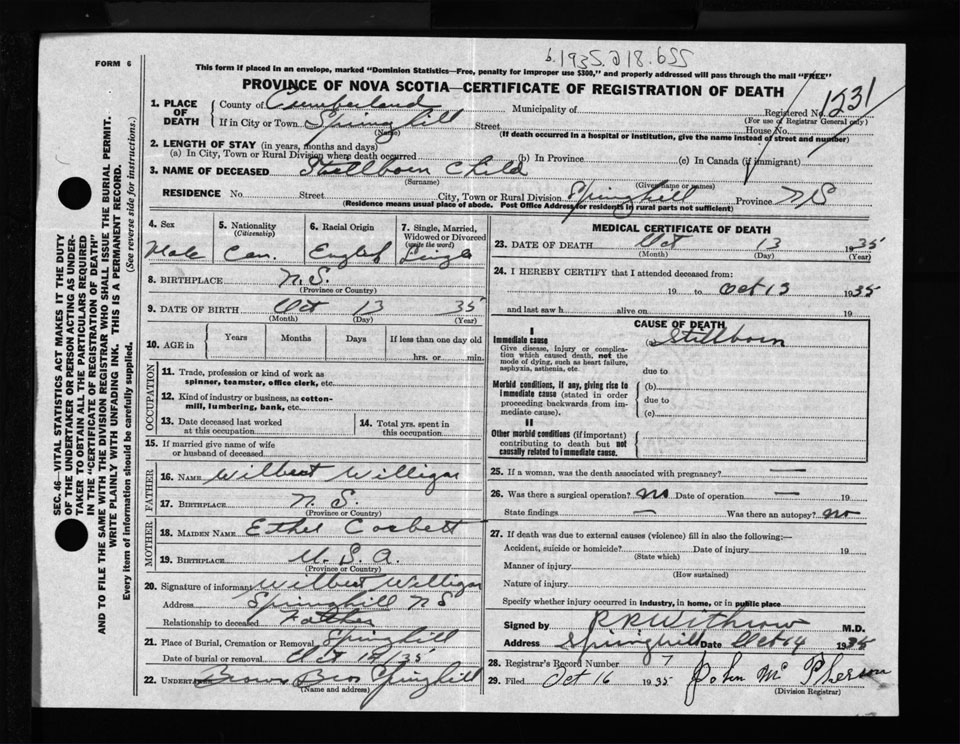 b.1935.218.655
FORM 6
This form if placed in an envelope, marked "Dominion Statistics—Free, penalty for improper use $300," and properly addressed will pass through the mail "FREE"
PROVINCE OF NOVA SCOTIA—CERTIFICATE OF REGISTRATION OF DEATH
1. PLACE OF DEATH County of Cumberland Municipality of Registered No. 1231
(For use of Registrar General only)
If in City or Town Springhill Street House No.
(Name) (If death occurred in a hospital or institution, give the name instead of street and number)
2. LENGTH OF STAY (in years, months and days)
(a) In City, Town or Rural Division where death occurred (b) In Province (c) In Canada (if immigrant)
3. NAME OF DECEASED Stillborn Child
(Surname) (Given name or names)
RESIDENCE No. Street City, Town or Rural Division Springhill Province NS
(Residence means usual place of abode. Post Office Address for residents in rural parts not sufficient)
4. Sex 5. Nationality (Citizenship) 6. Racial Origin 7. Single, Married, Widowed or Divorced (write the word)
Male Can. English Single
8. BIRTHPLACE N.S.
(Province or Country)
9. DATE OF BIRTH Oct 13 35
(Month) (Day) (Year)
10. AGE in Years Months Days If less than one day old
hrs. or min.
OCCUPATION
11. Trade, profession or kind of work as spinner, teamster, office clerk, etc.
12. Kind of industry or business, as cotton-mill, lumbering, bank, etc.
13. Date deceased last worked at this occupation
14. Total yrs. spent in this occupation
15. If married give name of wife or husband of deceased
FATHER
16. NAME Wilbert Willigar
17. BIRTHPLACE N.S.
(Province or Country)
MOTHER
18. MAIDEN NAME Ethel Corbett
19. BIRTHPLACE U.S.A.
(Province or Country)
20. Signature of informant Wilbert Willigar
Address Springhill NS
Relationship to deceased Father
21. Place of Burial, Cremation or Removal Springhill
Date of burial or removal Oct /35
22. UNDERTAKER Brown Bros Springhill
(Name and address)
MEDICAL CERTIFICATE OF DEATH
23. DATE OF DEATH Oct 13 1935
(Month) (Day) (Year)
24. I HEREBY CERTIFY that I attended deceased from:
19 to Oct 13 1935
and last saw h alive on 19
CAUSE OF DEATH
I
Immediate cause (a) Stillborn
Give disease, injury or complication which caused death, not the mode of dying, such as heart failure, asphyxia, asthenia, etc.
due to
Morbid conditions, if any, giving rise to immediate cause (stated in order proceeding backwards from immediate cause).
(b)
due to
(c)
II
Other morbid conditions (if important) contributing to death but not causally related to immediate cause.
25. If a woman, was the death associated with pregnancy? —
26. Was there a surgical operation? no Date of operation — 19
State findings — Was there an autopsy? no
27. If death was due to external causes (violence) fill in also the following:—
Accident, suicide or homicide? Date of injury 19
(State which)
Manner of injury
(How sustained)
Nature of injury
Specify whether injury occurred in industry, in home, or in public place
Signed by R R Withrow M.D.
Address Springhill Date Oct 14 1935
28. Registrar's Record Number 7
29. Filed Oct 16 1935 John McPherson
(Division Registrar)
SEC. 46—VITAL STATISTICS ACT MAKES IT THE DUTY
OF THE UNDERTAKER OR PERSON ACTING AS UNDER-
TAKER TO OBTAIN ALL THE PARTICULARS REQUIRED
IN THE "CERTIFICATE OF REGISTRATION OF DEATH"
AND TO FILE THE SAME WITH THE DIVISION REGISTRAR WHO SHALL ISSUE THE BURIAL PERMIT.
WRITE PLAINLY WITH UNFADING INK. THIS IS A PERMANENT RECORD.
Every item of information should be carefully supplied. (See reverse side for instructions.)